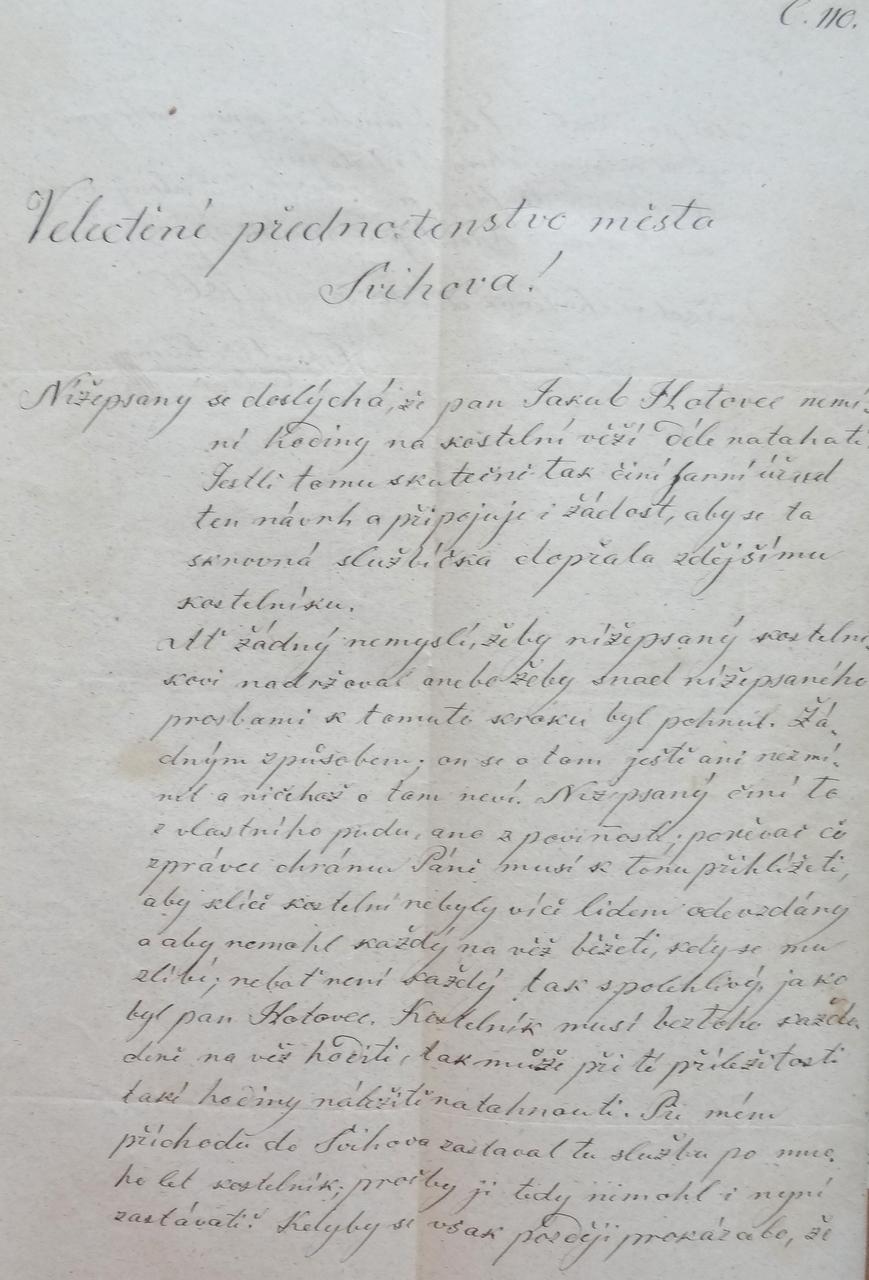 Č. 110.
Velectěné přednostenstvo města
Švihova!
Nížepsaný se doslýchá, že pan Jakub Hotovec nemí-
ní hodiny na kostelní věži déle natahati.
Jestli tomu skutečně tak činí farní úřad
ten návrh a připojuje i žádost, aby se ta
skrovná službička dopřála zdějšímu
kostelníku.
Ať žádný nemyslí, žeby nížepsaný kostelní-
kovi nadržoval anebo žeby snad nížepsaného
prosbami k tomuto kroku byl pohnul. Žá-
dným způsobem; on se o tom ještě ani nezmí-
nil a ničehož o tom neví. Nížepsaný činí to
z vlastního pudu, ano z povinnosti; poněvač co
zprávce chrámu Páně musí k tomu přihlížeti,
aby klíče kostelní nebyly více lidem odevzdány
a aby nemohl každý na věž běžeti, kdy se mu
zlíbí; neboť není každý tak spolehlivý, jako
byl pan Hotovec. Kostelník musí beztoho každo-
denně na věž choditi, tak může při té příležitosti
také hodiny náležitě natahnouti. Při mém
příchodu do Švihova zastával tu službu po mno-
ho let kostelník; pročby ji tedy nemohl i nyní
zastávati? Kdyby se však později prokázalo, že